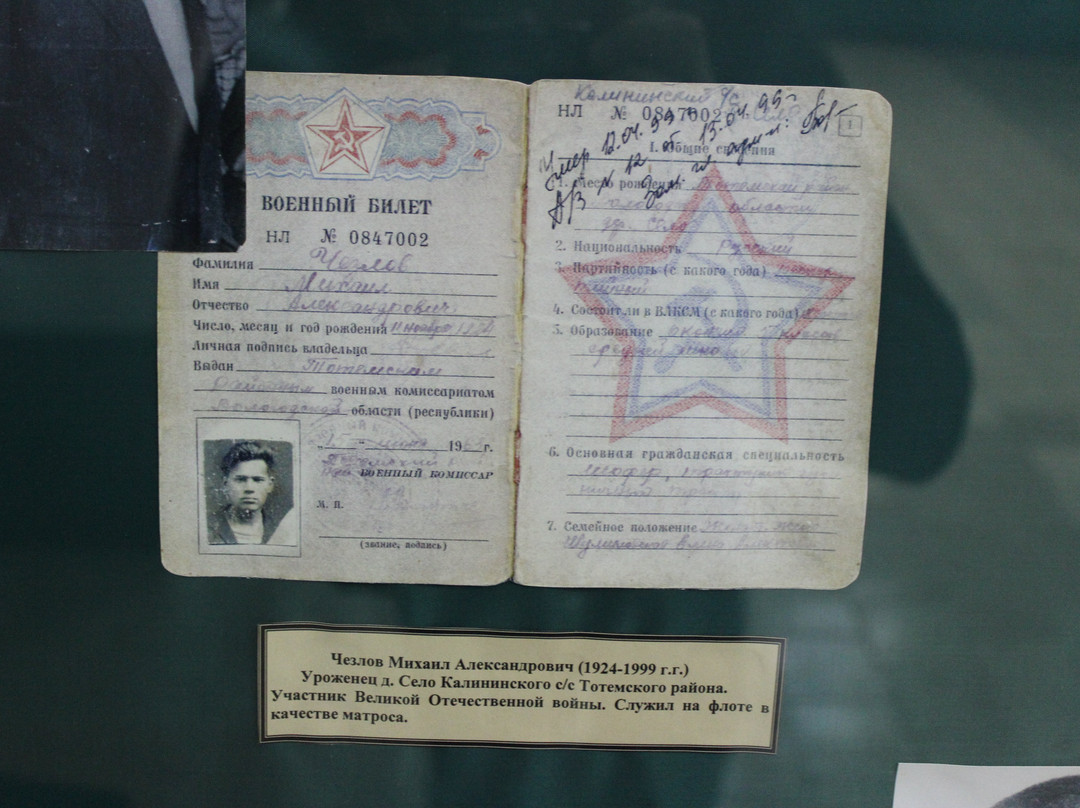 ВОЕННЫЙ БИЛЕТ
НЛ № 0847002
Фамилия Чезлов
Имя Михаил
Отчество Александрович
Число, месяц и год рождения 11 ноября 1924
Личная подпись владельца
Выдан Тотемским
районным военным комиссариатом
Вологодской области (республики)
"15" июня 1963 г.
ВОЕННЫЙ КОМИССАР
М. П.
(звание, подпись)
Калининский с/с
НЛ № 0847002 Село
1
Умер 12.04.99 г.
А/В № 12 от 13.04.99
Зам. гл. адм.:
I. Общие сведения
1. Место рождения Тотемский район
Вологодской области
др. Село
2. Национальность Русский
3. Партийность (с какого года)
4. Состоял ли в ВЛКСМ (с какого года)
5. Образование
6. Основная гражданская специальность
шофер,
7. Семейное положение Женат, жена
Чезлов Михаил Александрович (1924-1999 г.г.)
Уроженец д. Село Калининского с/с Тотемского района.
Участник Великой Отечественной войны. Служил на флоте в
качестве матроса.